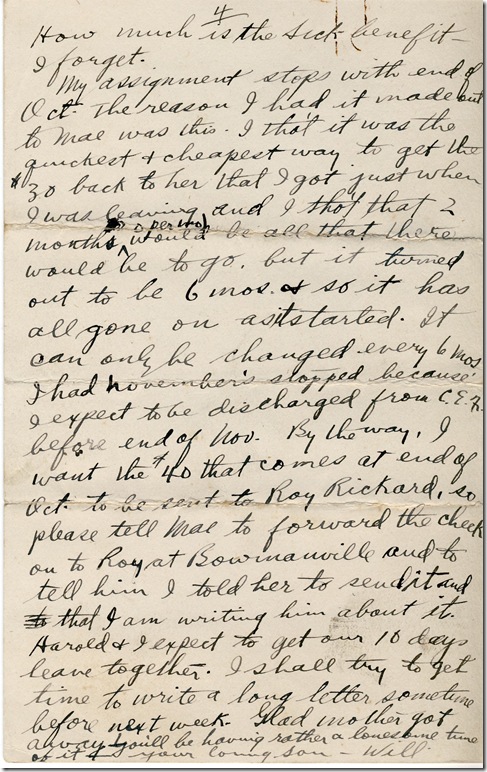 4
How much is the sick benefit –
I forget.
My assignment stops with end of
Oct. The reason I had it made out
to Mae was this. I tho't it was the
quickest & cheapest way to get the
$30 back to her that I got just when
I was leaving and I tho't that 2
months would be all that there
would be to go, but it turned
out to be 6 mos. & so it has
all gone on as it started. It
can only be changed every 6 mos.
I had November's stopped because
I expect to be discharged from C.E.F.
before end of Nov. By the way, I
want the $40 that comes at end of
Oct. to be sent to Roy Rickard, so
please tell Mae to forward the check
on to Roy at Bowmanville and to
tell him I told her to send it and
that I am writing him about it.
Harold & I expect to get our 10 days
leave together. I shall try to get
time to write a long letter sometime
before next week. Glad mother got
away – you'll be having rather a lonesome time
of it. Your loving son – Will